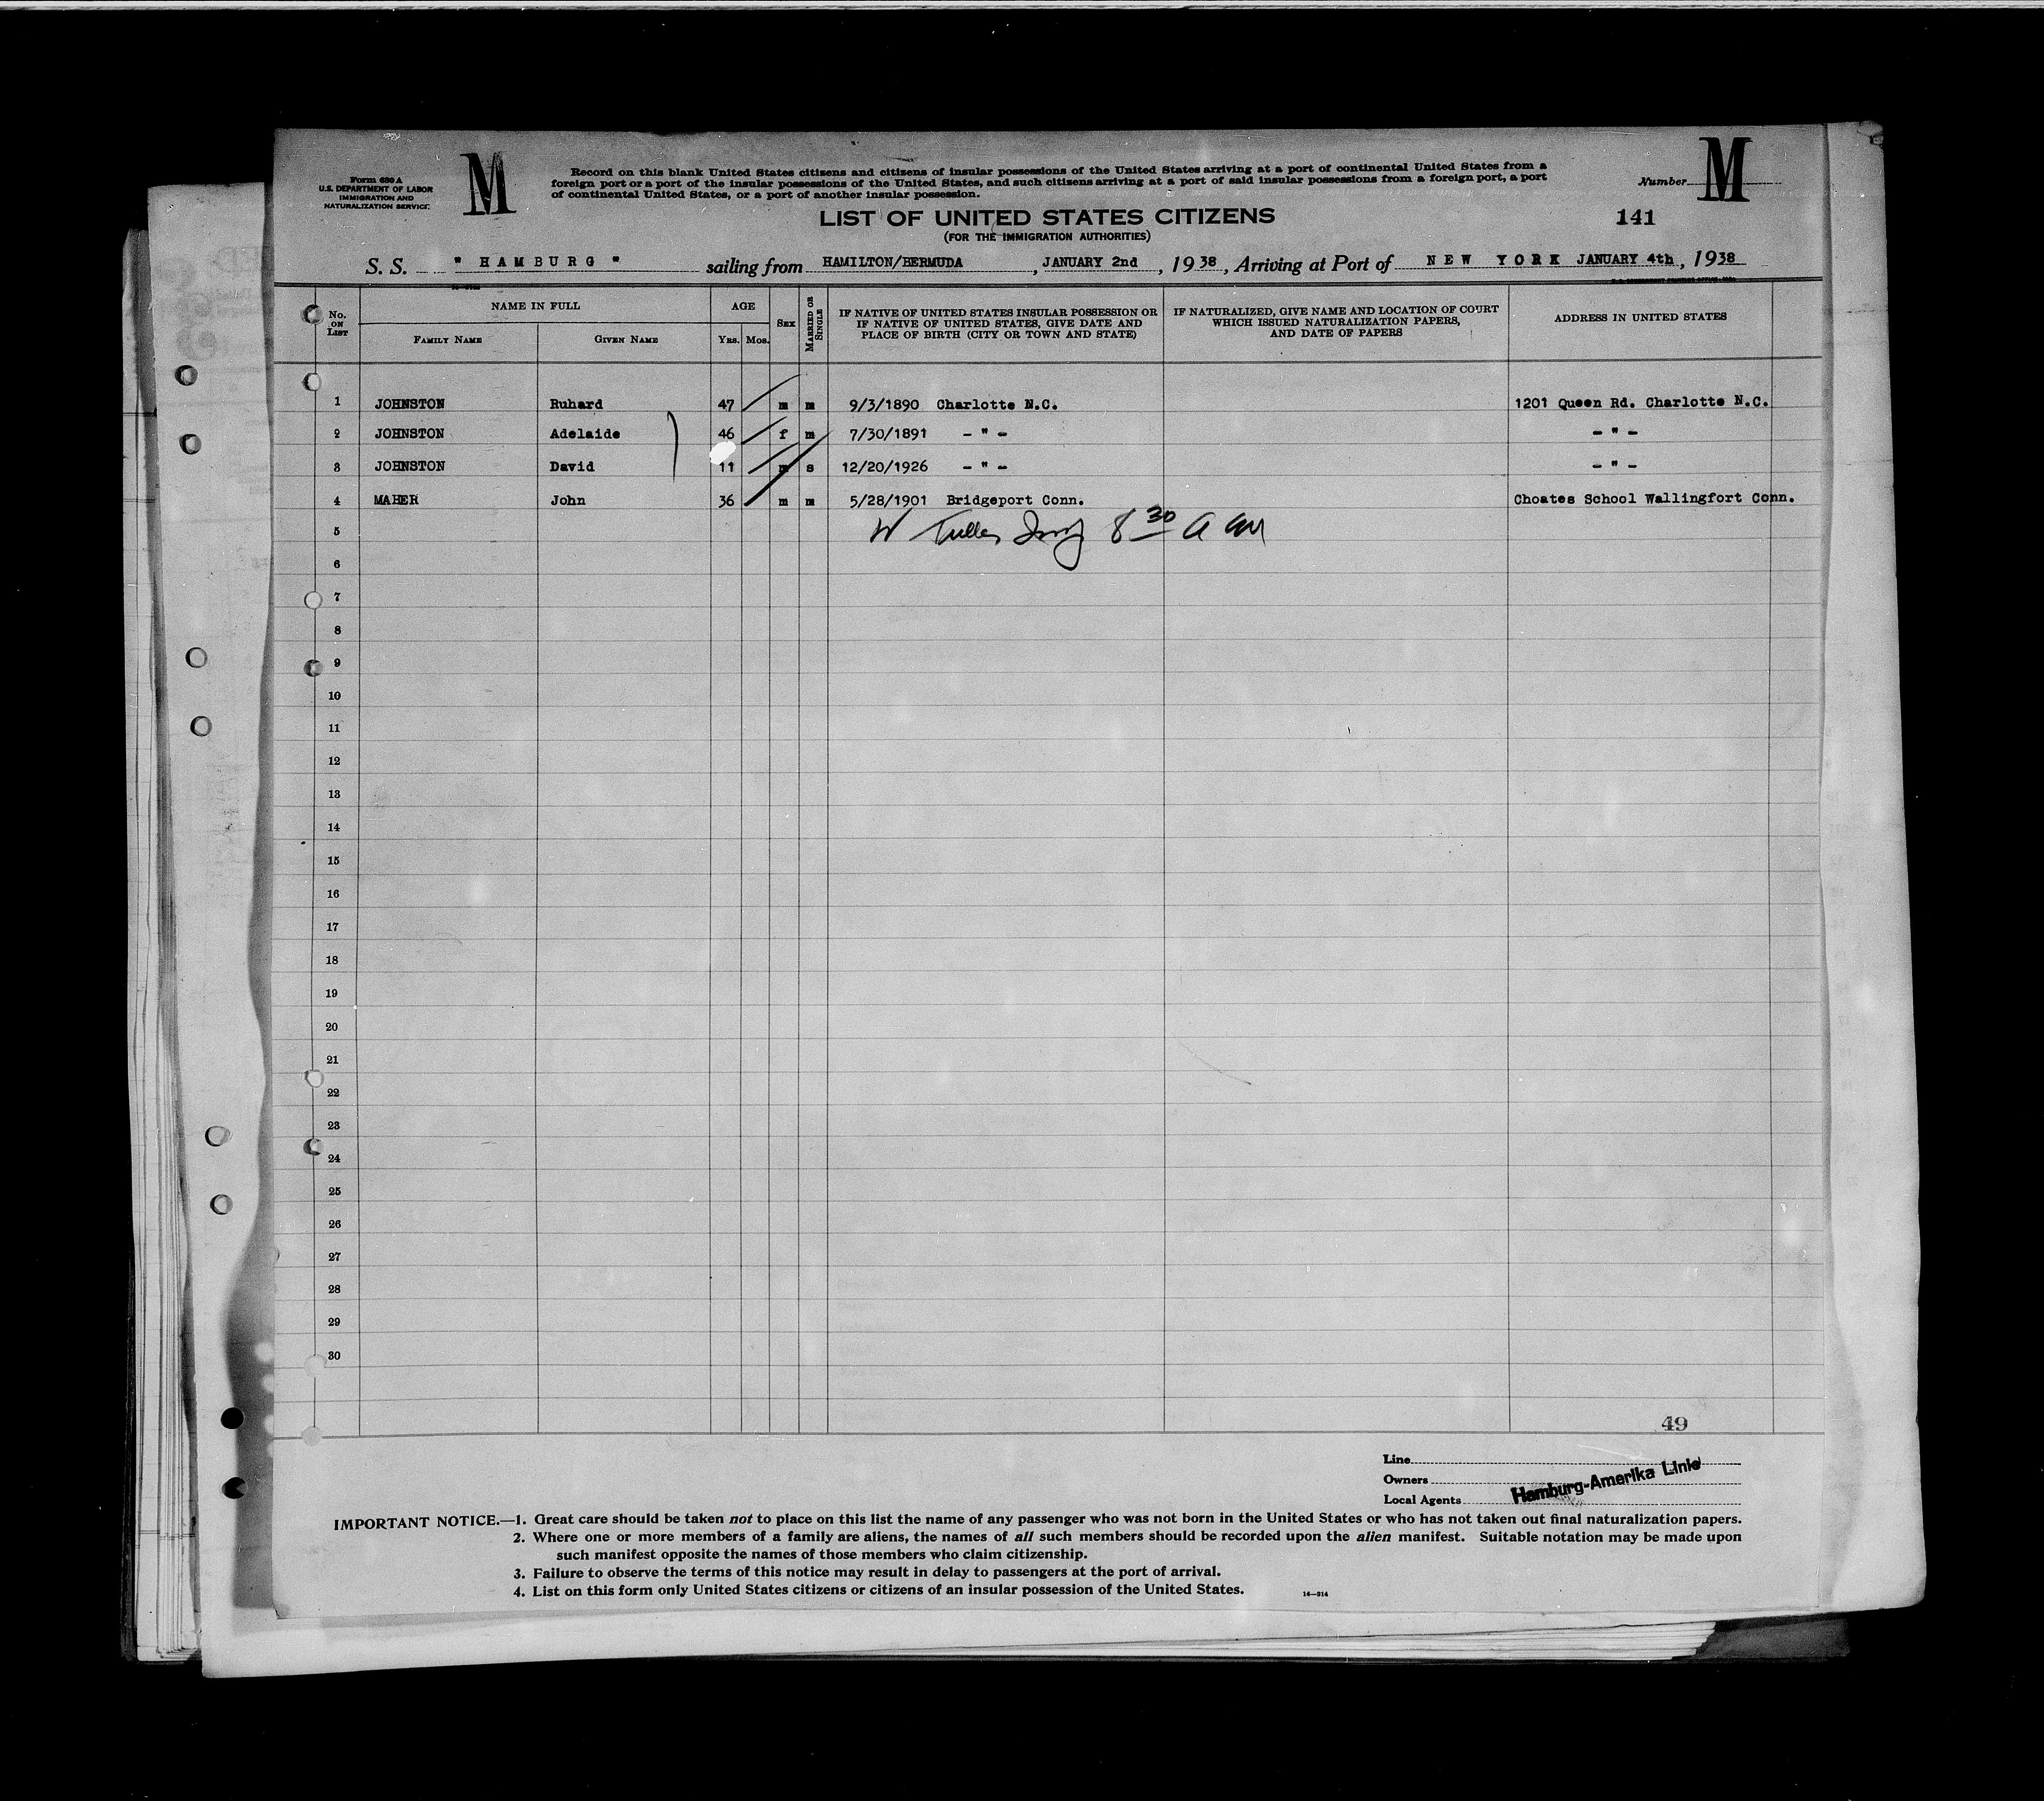 Form 630 A
U.S. DEPARTMENT OF LABOR
IMMIGRATION AND
NATURALIZATION SERVICE
M
Record on this blank United States citizens and citizens of insular possessions of the United States arriving at a port of continental United States from a
foreign port or a port of the insular possessions of the United States, and such citizens arriving at a port of said insular possessions from a foreign port, a port
of continental United States, or a port of another insular possession.
Number M
LIST OF UNITED STATES CITIZENS
141
(FOR THE IMMIGRATION AUTHORITIES)
S. S. " HAMBURG " sailing from HAMILTON/BERMUDA, JANUARY 2nd, 1938, Arriving at Port of NEW YORK JANUARY 4th, 1938
No. ON LIST
NAME IN FULL
FAMILY NAME
GIVEN NAME
AGE
YRS. MOS.
SEX
MARRIED OR SINGLE
IF NATIVE OF UNITED STATES INSULAR POSSESSION OR
IF NATIVE OF UNITED STATES, GIVE DATE AND
PLACE OF BIRTH (CITY OR TOWN AND STATE)
IF NATURALIZED, GIVE NAME AND LOCATION OF COURT
WHICH ISSUED NATURALIZATION PAPERS,
AND DATE OF PAPERS
ADDRESS IN UNITED STATES
1 JOHNSTON Ruhard 47 m m 9/3/1890 Charlotte N.C. 1201 Queen Rd. Charlotte N.C.
2 JOHNSTON Adelaide 46 f m 7/30/1891 - " - - " -
3 JOHNSTON David 11 m s 12/20/1926 - " - - " -
4 MAHER John 36 m m 5/28/1901 Bridgeport Conn. Choates School Wallingfort Conn.
5 W 8 30 A M
6
7
8
9
10
11
12
13
14
15
16
17
18
19
20
21
22
23
24
25
26
27
28
29
30
49
Line
Owners
Local Agents
Hamburg-Amerika Linie
IMPORTANT NOTICE.—1. Great care should be taken not to place on this list the name of any passenger who was not born in the United States or who has not taken out final naturalization papers.
2. Where one or more members of a family are aliens, the names of all such members should be recorded upon the alien manifest. Suitable notation may be made upon
such manifest opposite the names of those members who claim citizenship.
3. Failure to observe the terms of this notice may result in delay to passengers at the port of arrival.
4. List on this form only United States citizens or citizens of an insular possession of the United States.
14—314